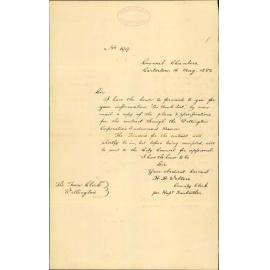 No 199
Council Chambers
Carterton 16 Aug. 1882
Sir
I have the honor to forward to you for
your information Mr by same
mail a copy of the plans & specifications
for the contract through the Wellington
Corporation Reserve
The Tenders for the contract will
shortly be in, but before being accepted, will
be sent to the City Council for approval.
I have the honor to be
Sir
Your obedient Servant
H.
County Clerk
per
The Town Clerk
Wellington